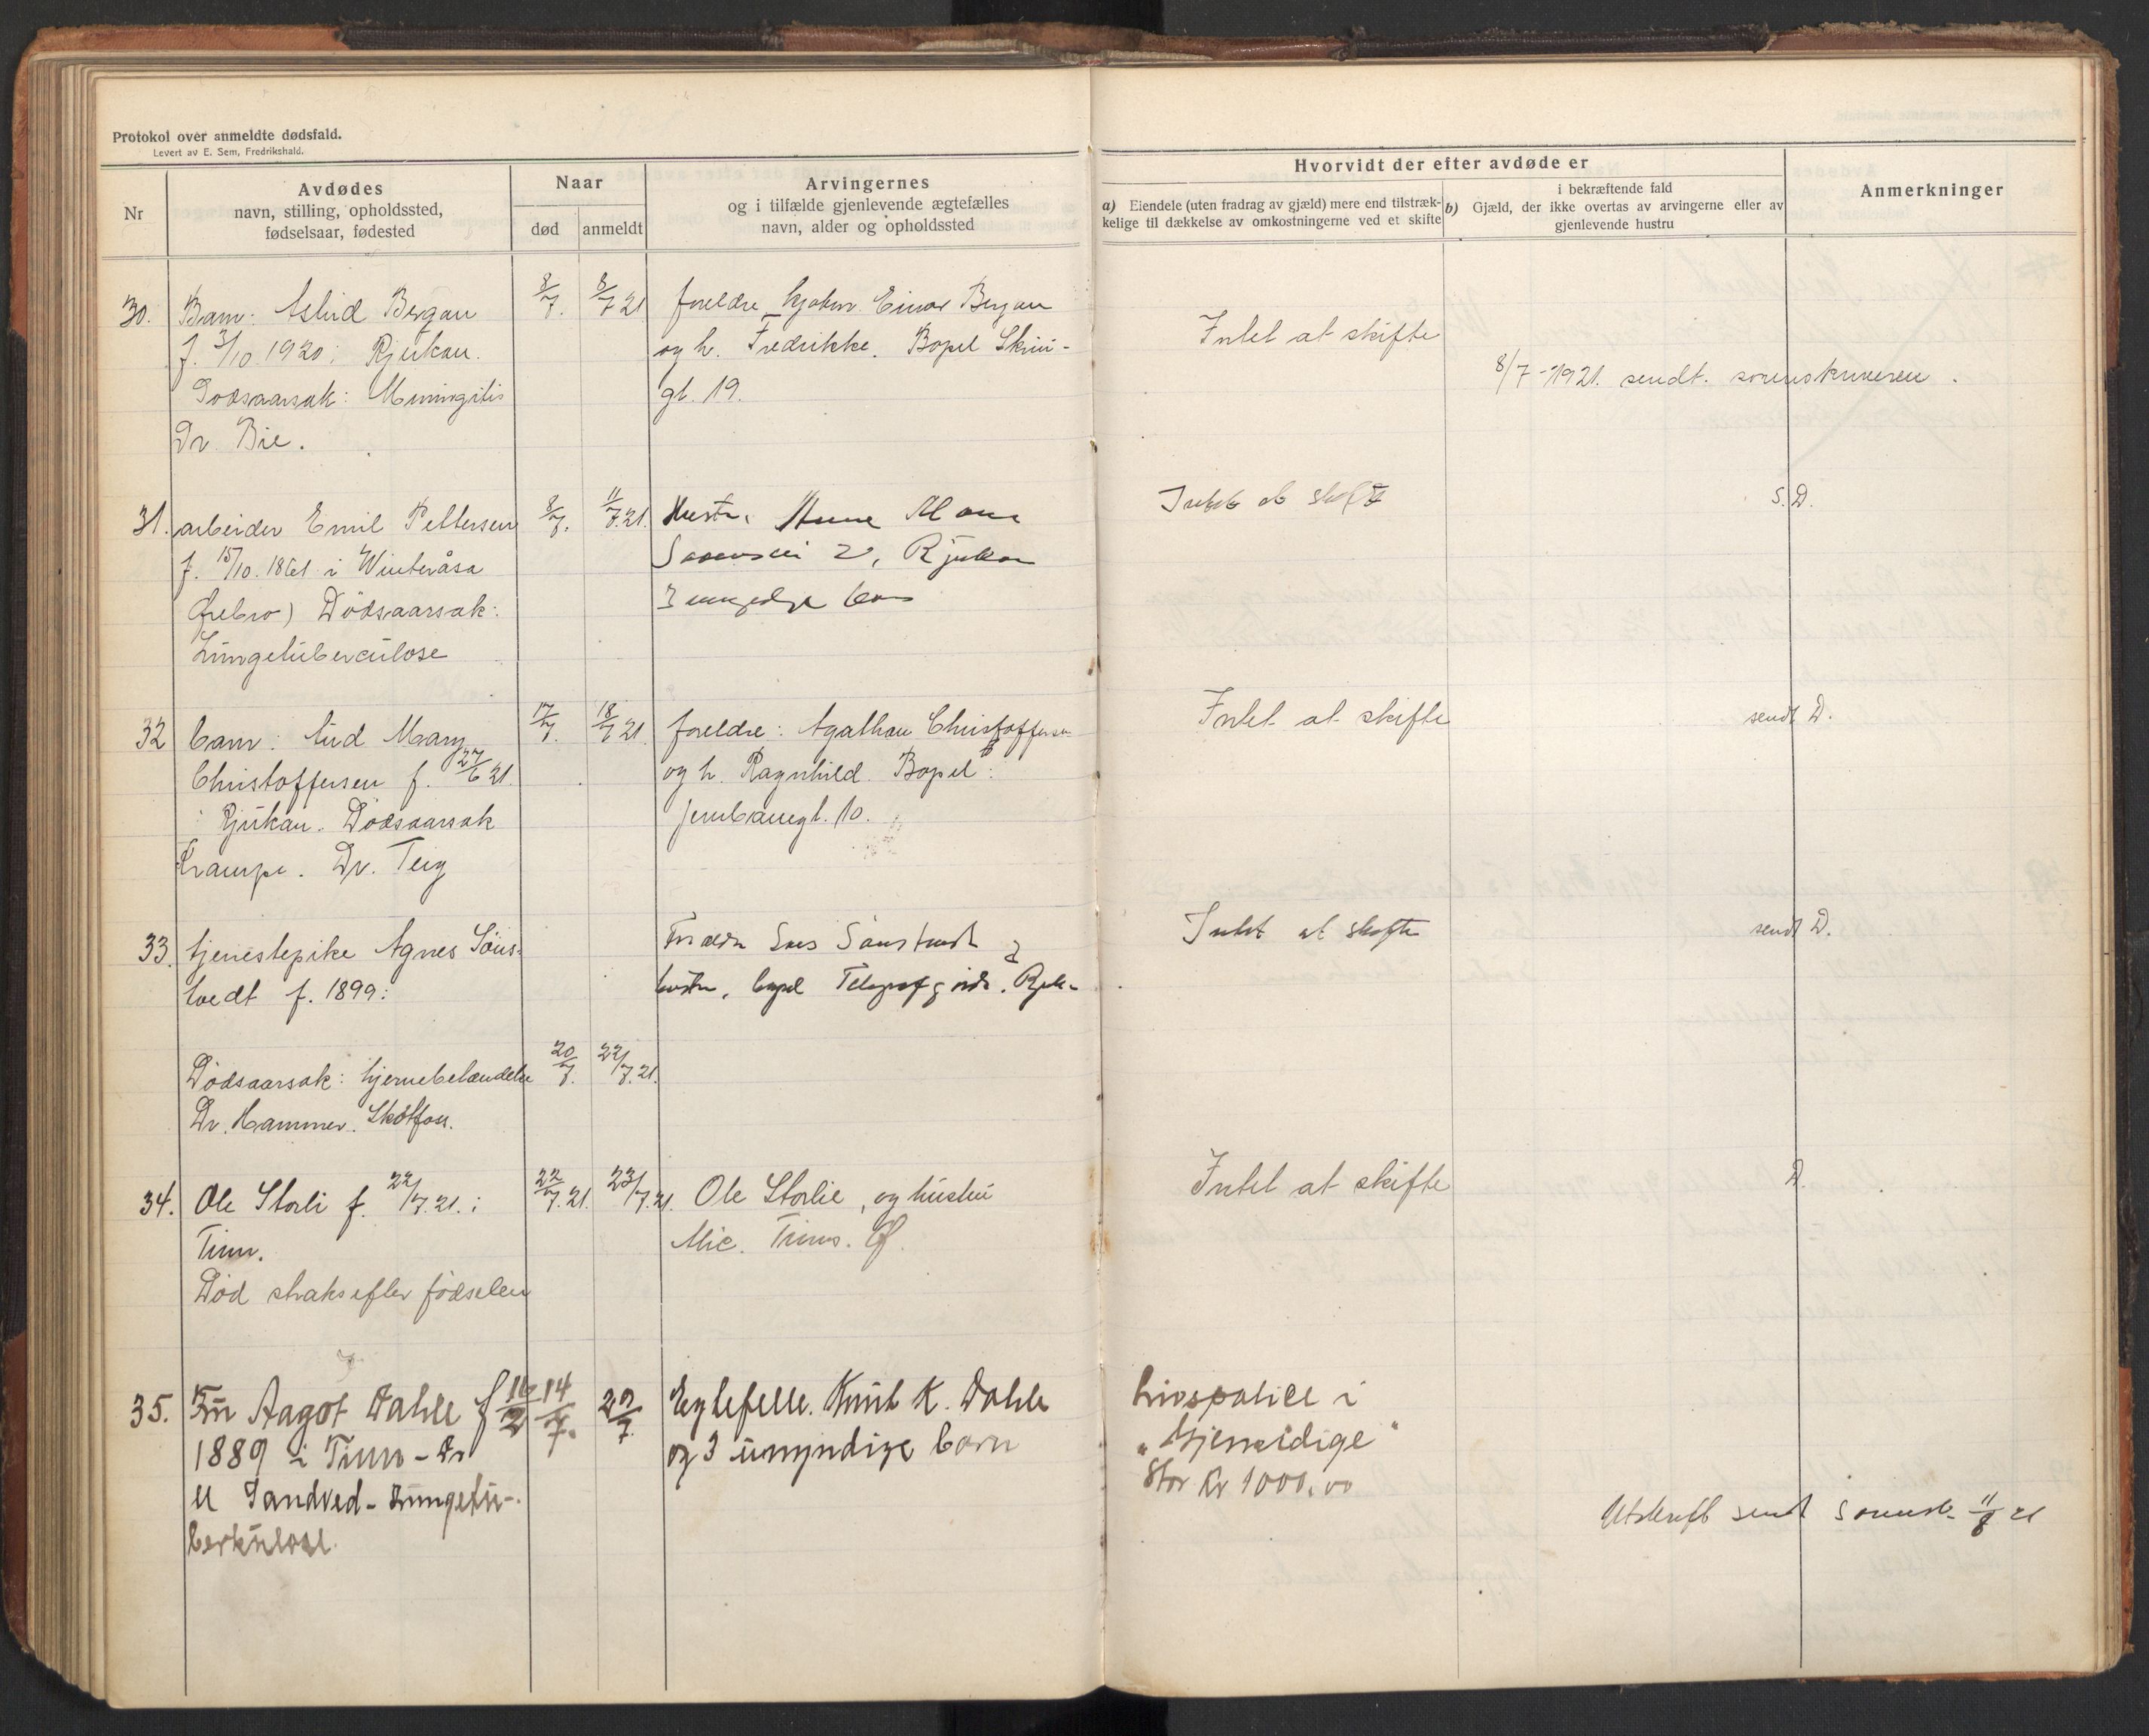 Protokol over anmeldte dødsfald.
Levert av E. Sem, Fredrikshald.
Nr
Avdødes
navn, stilling, opholdssted,
fødselsaar, fødested
Naar
død
anmeldt
Arvingernes
og i tilfælde gjenlevende ægtefælles
navn, alder og opholdssted
Hvorvidt der efter avdøde er
a) Eiendele (uten fradrag av gjæld) mere end tilstræk-
kelige til dækkelse av omkostningerne ved et skifte
i bekræftende fald
b) Gjæld, der ikke overtas av arvingerne eller av
gjenlevende hustru
Anmerkninger
30. Barn: Astrid Bergan 8/7. 8/7 21 foreldre Einar Bergan
f. 3/10. 1920 i Rjukan. og h. Fredrikke. Bopel
Dødsaarsak: Meningitis gt. 19.
Dr. Bie.
Intet at skifte
8/7-1921. sendt. sorenskriveren.
31. arbeider Emil Pettersen 8/7. 11/7.21. Hustru Anne
f. 15/10. i Winteråsa 2, Rjukan
Ørebro) Dödsaarsak:
Lungetuberculose
Intet at skifte S.D.
32 barn: Aud Mary 17/7. 18/7 21. foreldre: Agathon Christoffersen
Christoffersen f. 27/6 21. og h. Ragnhild. Bopel:
i Rjukan. Dödsaarsak jernbanegt. 10.
Krampe. Dr. Teig
Intet at skifte sendt D.
33. tjenestepike Agnes Söns-
tvedt f. 1899: Bopel Rjukan
Dödsaarsak: hjernebetændelse 20/7. 22/7.21.
Dr. Hammer. Skotfoss.
Intet at skifte sendt D.
34. Ole Storli f. 22/7.21. i 22/7.21. 23/7.21. Ole Storlie, og hustru
Tinn. Tinns. Ø.
Död straks efter födselen
Intet at skifte D.
35. Fru Aagot Dahle f 16/2 14/7. 22/7. Egtefelle. Knut K. Dahle
1889 i Tinn - Dr og 3 umyndige born
U Sandved - Lungetu-
berkulose.
Livspolice i
"Gjensidige"
Stor Kr 1000,00
Utskrift sendt Sorensk. 11/8 21